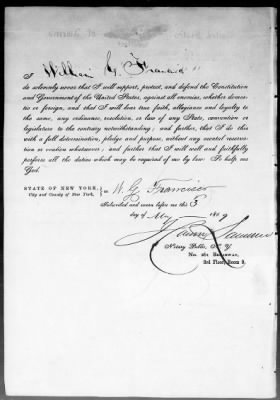 I William G. Francis
do solemnly swear that I will support, protect, and defend the Constitution
and Government of the United States, against all enemies, whether domes-
tic or foreign, and that I will bear true faith, allegiance and loyalty to
the same, any ordinance, resolution, or law of any State, convention or
legislature to the contrary notwithstanding; and further, that I do this
with a full determination, pledge and purpose, without any mental reserva-
tion or evasion whatsoever; and further that I will well and faithfully
perform all the duties which may be required of me by law: So help me
God.
STATE OF NEW YORK,
City and County of New York.
W. G. Francis
Subscribed and sworn before me this 3
day of May
Notary Public, N. Y
No. 261 Broadway,
3rd Floor, Room 9.